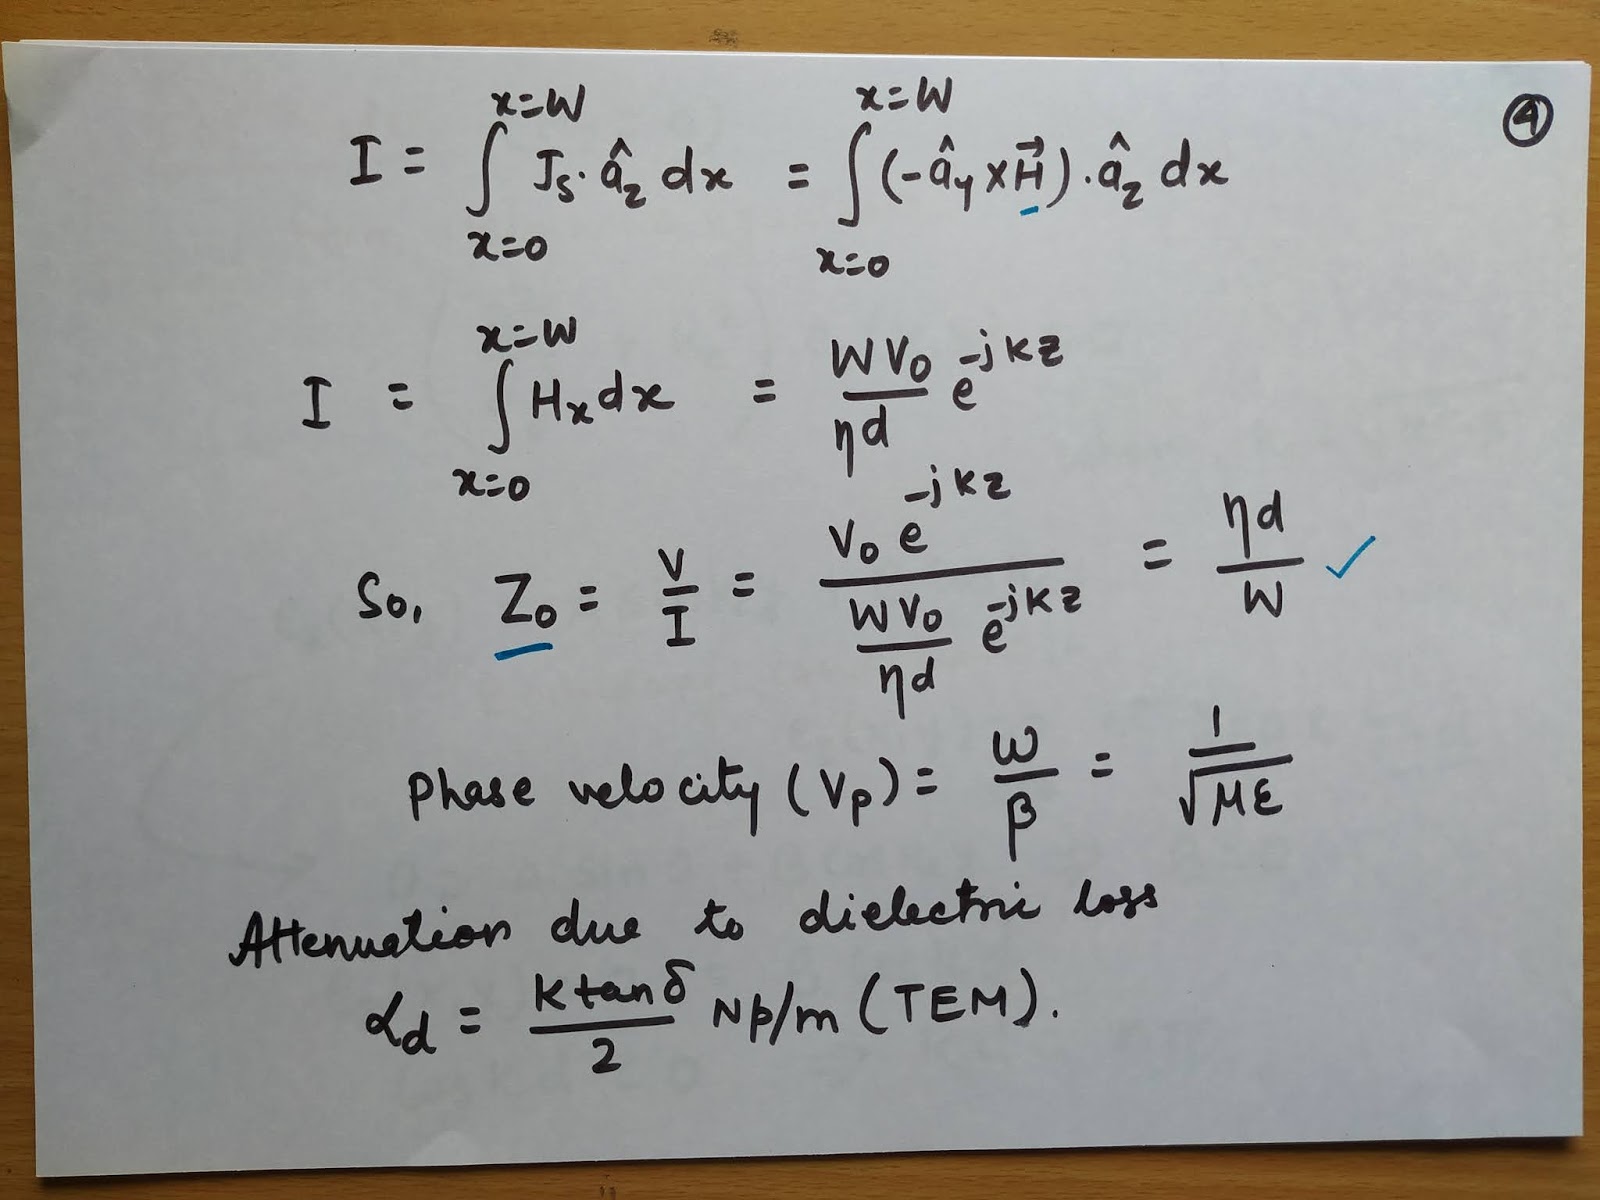 ④
x=W x=W
I = ∫ Js · â_z dx = ∫ (-â_y × H⃗) · â_z dx
x=0 x=0
x=W
I = ∫ H_x dx = WV₀/ηd e^{-jkz}
x=0
So, Z₀ = V/I = V₀ e^{-jkz} / (WV₀/ηd e^{-jkz}) = ηd/W ✓
Phase velocity (Vp) = ω/β = 1/√με
Attenuation due to dielectric loss
α_d = k tanδ/2 Np/m (TEM).